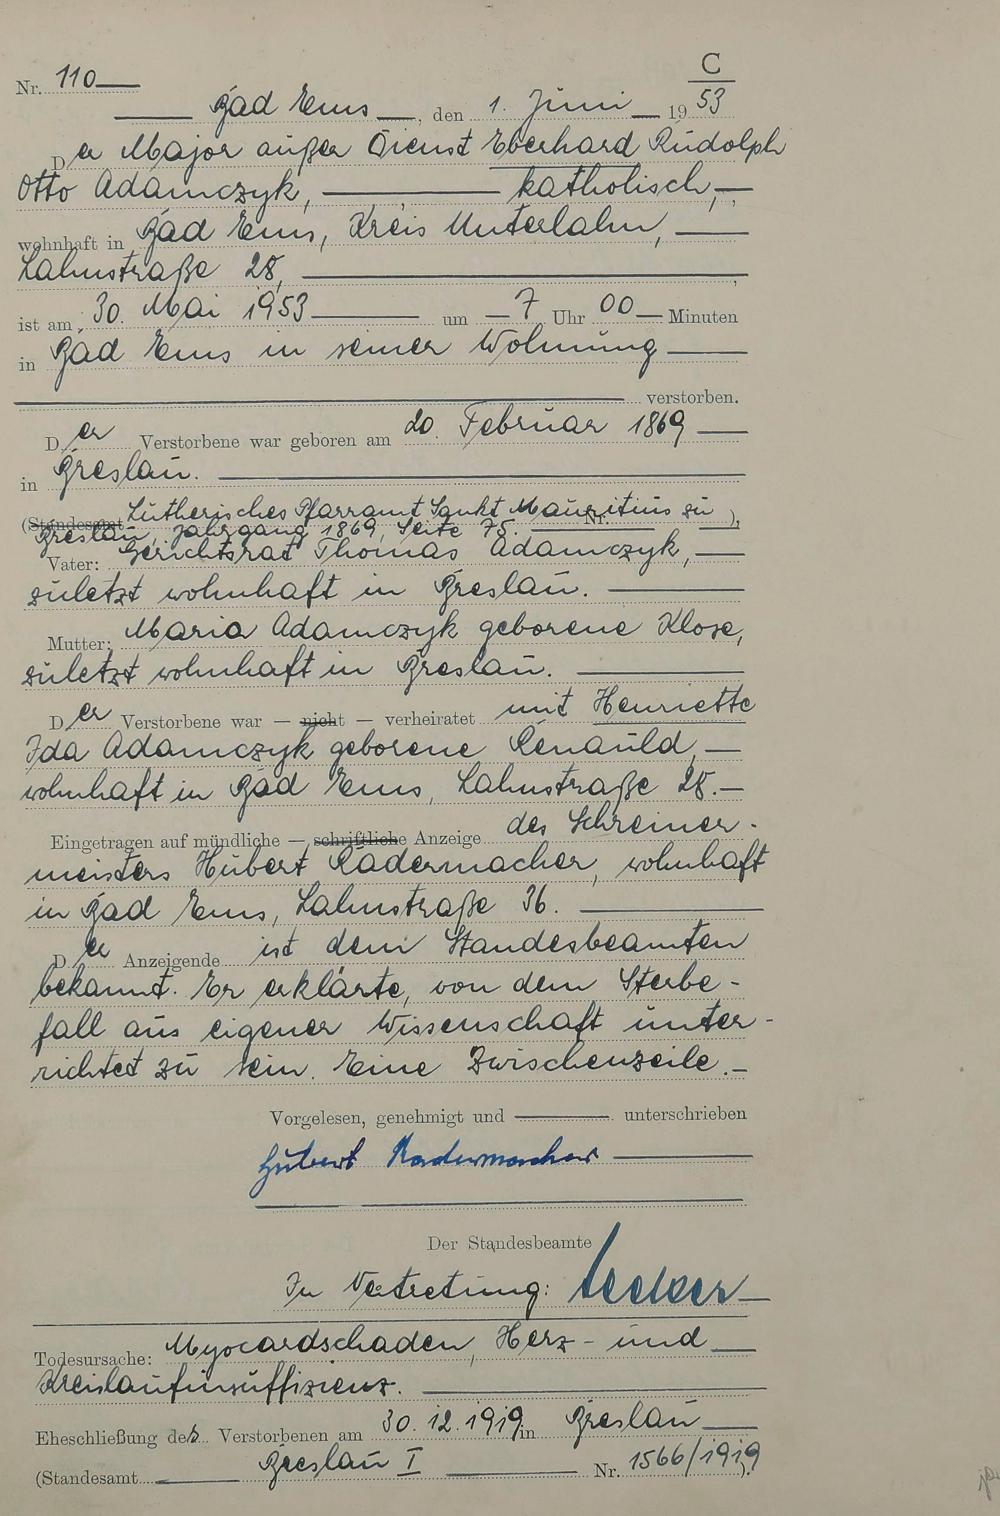 C
Nr. 110
Bad Ems, den 1. Juni 1953
Der Major außer Dienst Eberhard Rudolph
Otto Adamczyk, katholisch,
wohnhaft in Bad Ems, Kreis Unterlahn,
Lahnstraße 28,
ist am 30. Mai 1953 um 7 Uhr 00 Minuten
in Bad Ems in seiner Wohnung
verstorben.
Der Verstorbene war geboren am 20. Februar 1869
in Breslau.
(Standesamt Lutherisches Pfarramt Sankt Mauritius zu
Breslau, Jahrgang 1869, Seite 75. Nr. ),
Vater: Gerichtsrat Thomas Adamczyk,
zuletzt wohnhaft in Breslau.
Mutter: Maria Adamczyk geborene Klose,
zuletzt wohnhaft in Breslau.
Der Verstorbene war — nicht — verheiratet mit Henriette
Ida Adamczyk geborene Renauld,
wohnhaft in Bad Ems, Lahnstraße 28.
Eingetragen auf mündliche — schriftliche Anzeige des Schreiner-
meisters Hubert Radermacher, wohnhaft
in Bad Ems, Lahnstraße 36.
Der Anzeigende ist dem Standesbeamten
bekannt. Er erklärte, von dem Sterbe-
fall aus eigener Wissenschaft unter-
richtet zu sein. Eine Zwischenzeile.
Vorgelesen, genehmigt und unterschrieben
Hubert Radermacher
Der Standesbeamte
In Vertretung:
Todesursache: Myocardschaden, Herz- und
Kreislaufinsuffizienz.
Eheschließung des Verstorbenen am 30.12.1919 in Breslau
(Standesamt Breslau I Nr. 1566/1919).